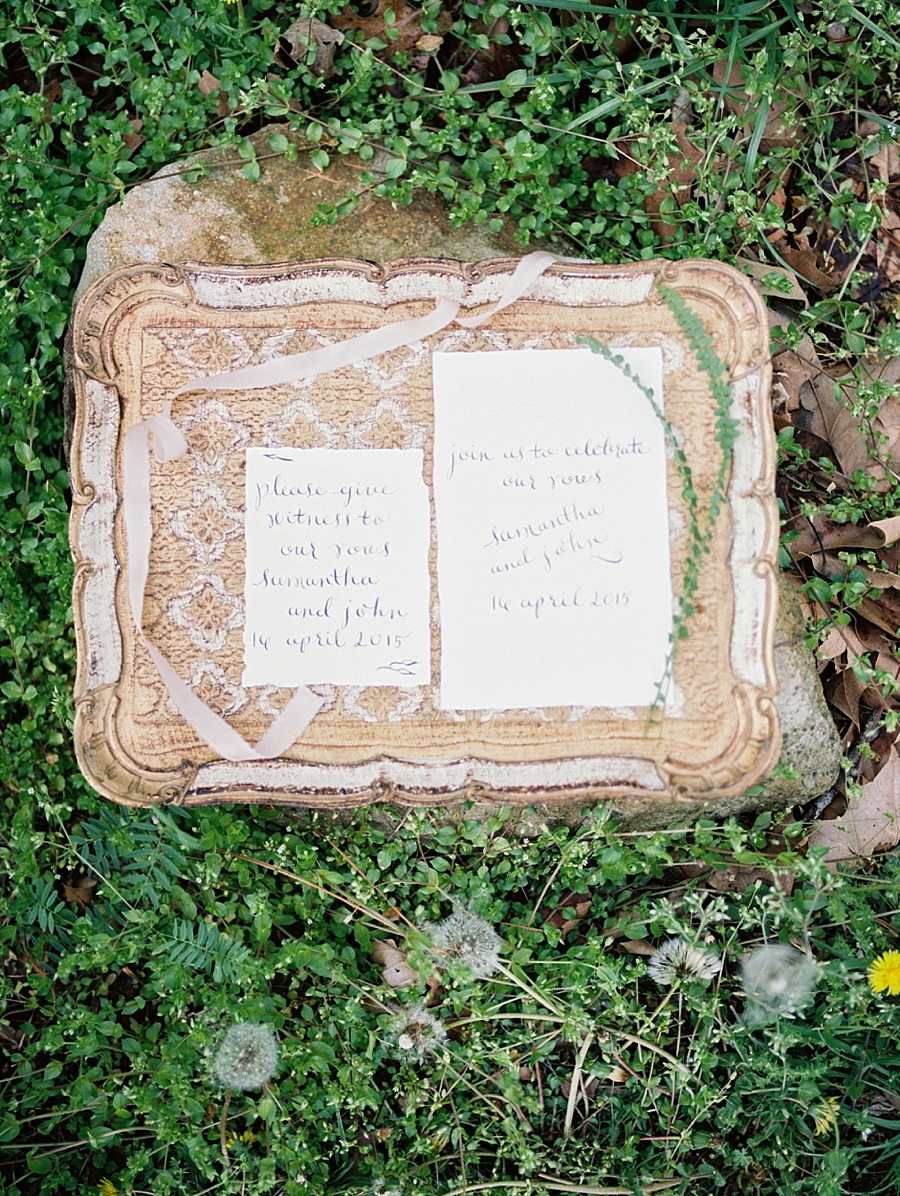 please give
witness to
our vows
samantha
and john
16 april 2015
join us to celebrate
our vows
samantha
and john
16 april 2015